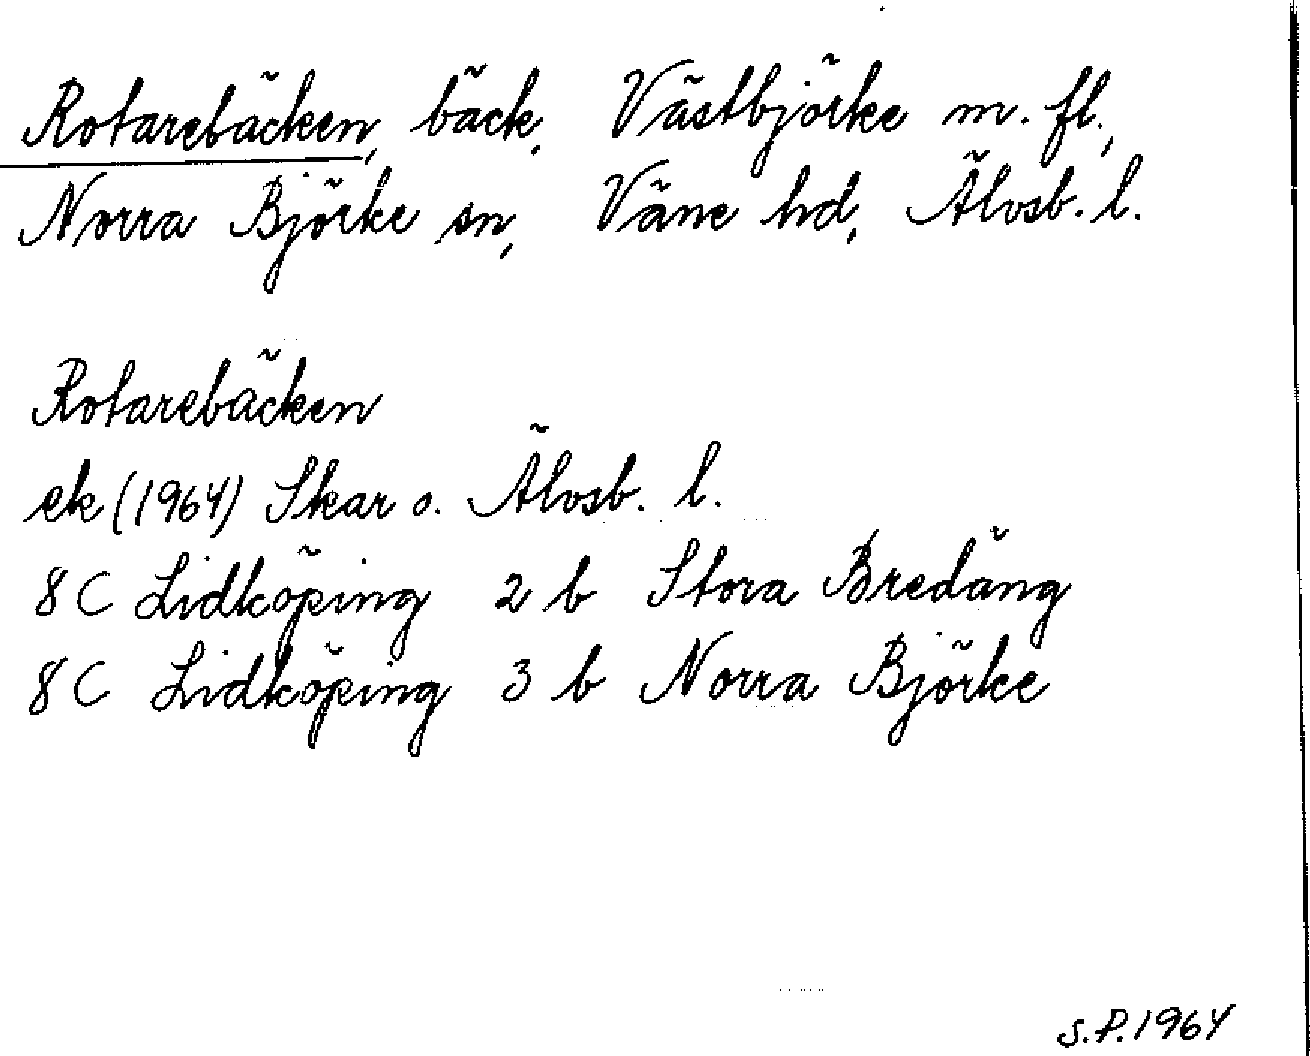 Rotarebäcken, bäck, Västbjörke m. fl.,
Norra Björke sn, Väne hd, Älvsb. l.
Rotarebäcken
ek (1964) Skar o. Älvsb. l.
8 C Lidköping 2 b Stora Bredäng
8 C Lidköping 3 b Norra Björke
S.P. 1964